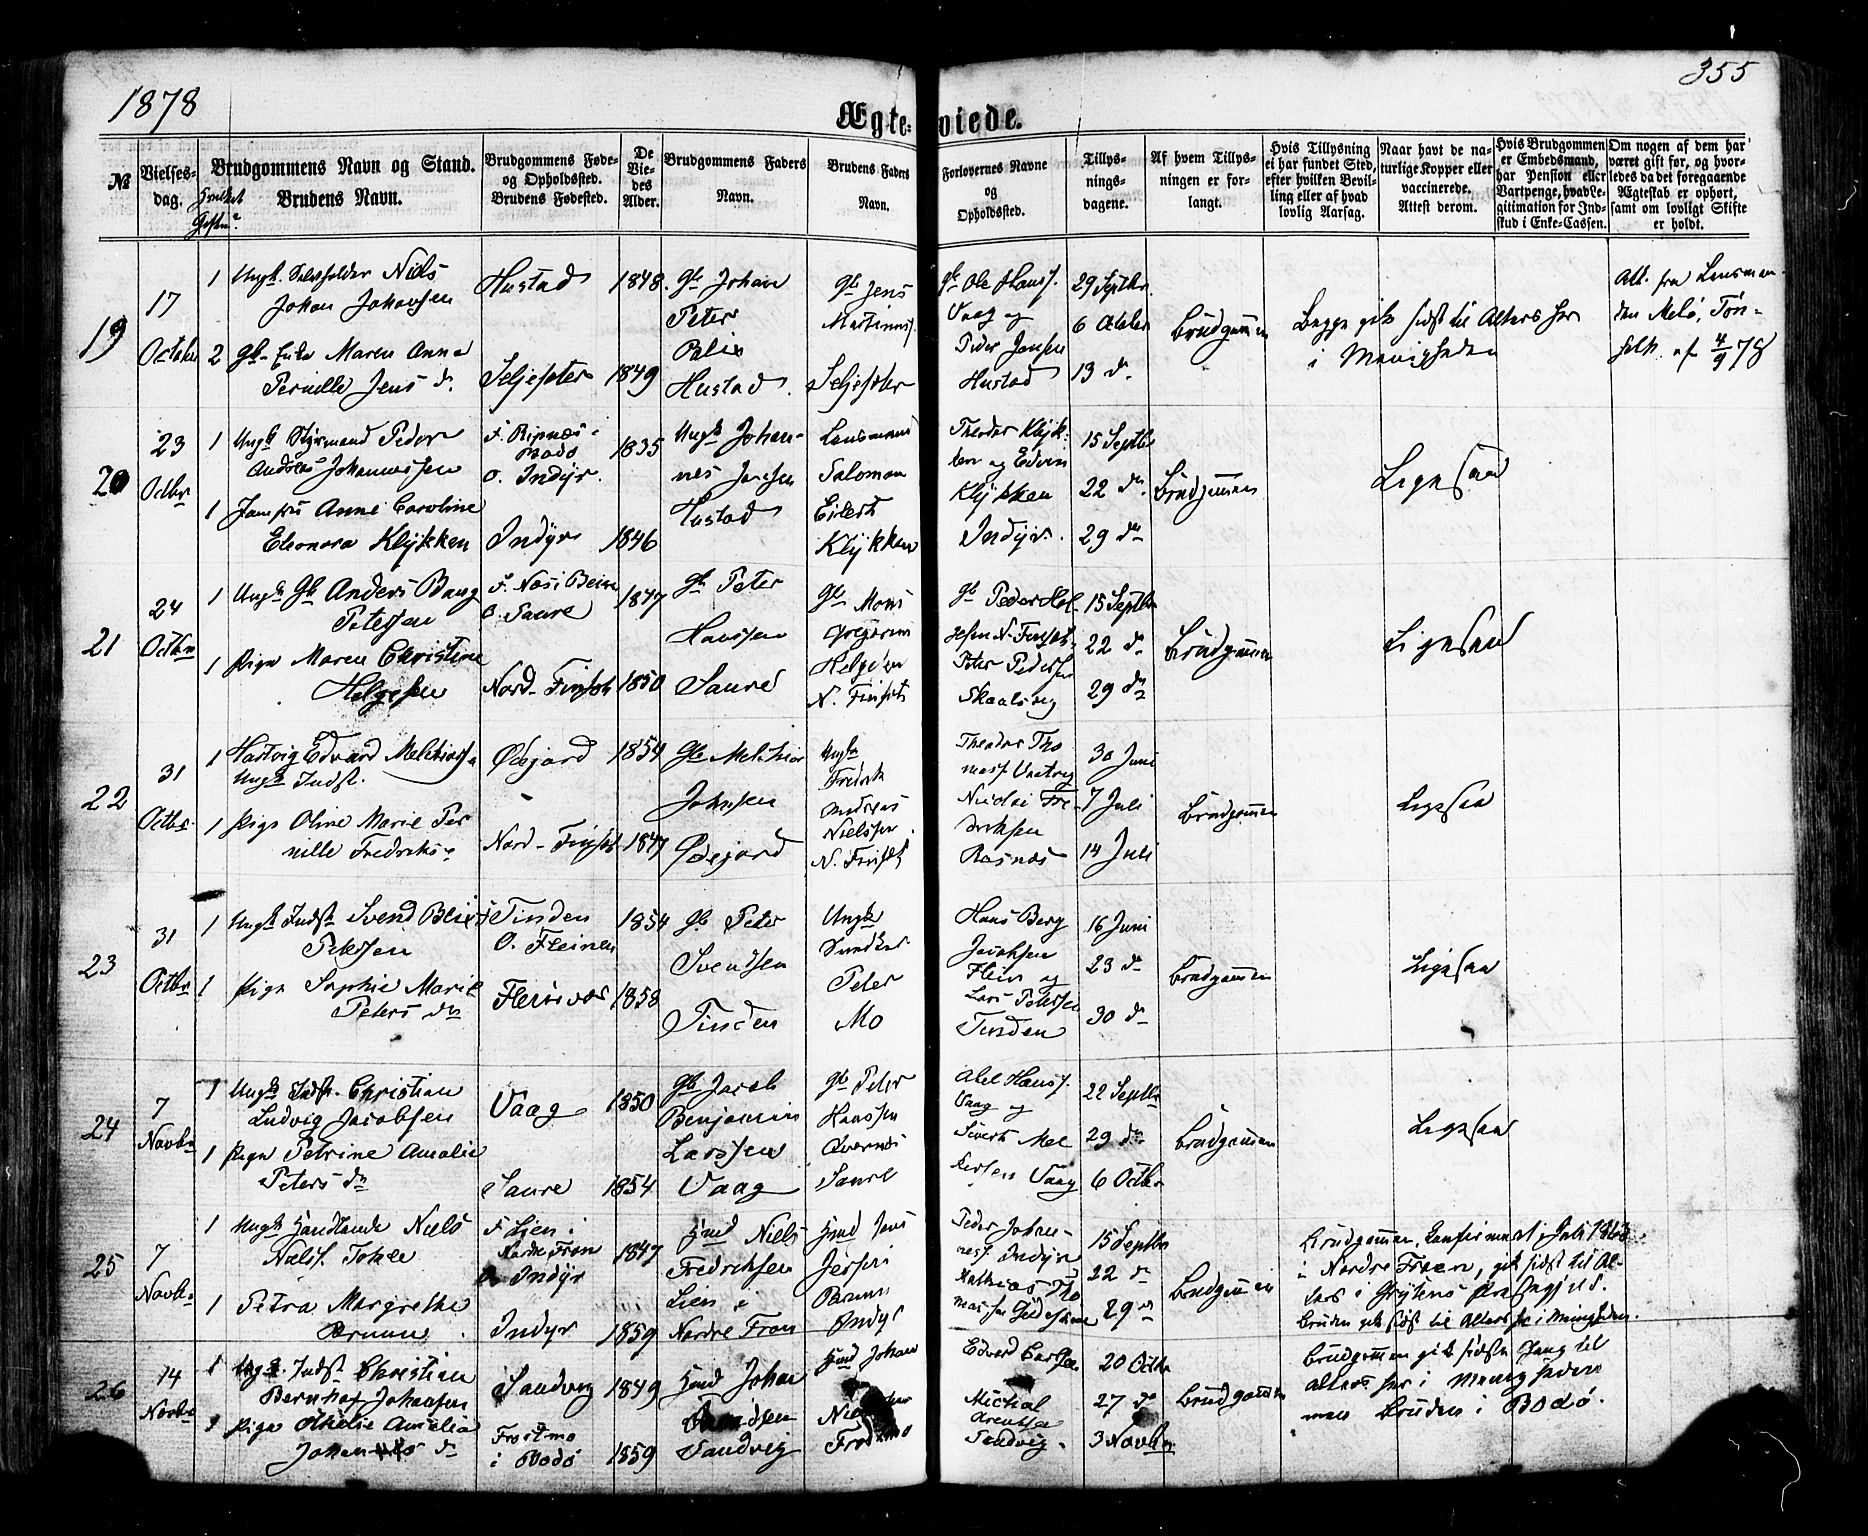 1878
355
Ægte-
viede.
№
Vielses-
dag.
Hvilket
Gifte?
Brudgommens Navn og Stand.
Brudens Navn.
Brudgommens Føde-
og Opholdssted.
Brudens Fødested.
De
Vie-
des
Alder.
Brudgommens Faders
Navn.
Brudens Faders
Navn.
Forlovernes Navne
og
Opholdssted.
Tillys-
nings-
dagene.
Af hvem Tillys-
ningen er for-
langt.
Hvis Tillysning
ei har fundet Sted,
efter hvilken Bevil-
ling eller af hvad
lovlig Aarsag.
Naar havt de na-
turlige Kopper eller
vaccinerede.
Attest derom.
Hvis Brudgommen
er Embedsmand,
har Pension eller
Vartpenge, hvad Le-
gitimation for Ind-
skud i Enke-Cassen.
Om nogen af dem har
været gift før, og hvor-
ledes da det foregaaende
Ægteskab er ophørt,
samt om lovligt Skifte
er holdt.
19
17
October
1
Ungk. Selvholder Niels
Johan Johansen
2
Gb. Enke Maren Anna
Pernille Jens d.
Hustad
Seljesæter
1848.
1849
Gb Johan
Peter
Hustad.
Gb Jens
Martinus.
Seljesæter
Gb Ole Hanss.
Vaag og
Peder Jensen
Hustad
29 Septbr.
6 October
13 d.
Brudgommen
Begge gik sidst til Alters her
i Menigheden
Att. fra Lensman-
den Melø,
af 4/9 78
20
23
Octbr
1
Ungk Styrmand Peder
Andreas Johannessen
1
Jomfru Anne Caroline
Eleonora Klykken
F. Ripnæs i
Bodø
O. Indyr.
Indyr
1835
1846
Ungk Johan-
nes Jensen
Hustad
Lensmand
Salomon
Eilert
Klykken
Theodor Klyk-
ken og Edvin
Klykken
Indyr.
15 Septbr
22 d.
29 d.
Brudgommen
Ligesaa
21
24
Octbr
1
Ungk Gb Anders Baug
Petersen
1
Pige Maren Christine
Helgesen
F. Næs i Beiarn
O. Saure
Nord-Finsæt
1847
1850
Gb Peter
Hanssen
Saure
Gb Mons
Gregorius
Helgesen
N. Finsæt
Gb Peder Hel-
gesen N. Finsæt.
Peter Pedersen
Skaalsvig
15 Septbr
22 d.
29 d.
Brudgommen
Ligesaa
22
31
Octbr.
1
Hartvig Edvard Melchiorsen
Ungk Indst.
1
Pige Oline Marie Per
nille Fredriks d
Ødejord
Nord-Finsæt
1854
1847
Gb Melchior
Johnsen
Ødejord
Ungk
Fredrik
Andreas
Nielsen.
N. Finsæt
Theodor Tho
mess.
Nicolai Fre-
driksen
Rosnæs
30 Juni
7 Juli
14 Juli
Brudgommen
Ligesaa
23
31
Octbr
1
Ungk Indst Svend Bleix
Petersen
1
Pige Sophie Marie
Peters dn
Tinden
O. Fleinen
Fleinvær
1854
1858
Gb Peter
Svendsen
Tinden
Ungk
Snedker
Peter
Mo
Hans Berg
Jacobsen
Flein og
Lars Petersen
Tinden
16 Juni
23 d.
30 d.
Brudgommen
Ligesaa
24
7
Novbr
1
Ungk Indst. Christian
Ludvig Jacobsen
1
Pige Petrine Amalie
Peters dn
Vaag
Saure
1850
1854
Gb Jacob
Benjamin
Larssen
Vaag
Gb Peter
Hanssen
Saure
Abel Hanss.
Vaag og
Sivert Mel
kersen Vaag
22 Septbr
29 d.
6 Octbr
Brudgommen
Ligesaa
25
7
Novbr
1
Ungk Handlende Niels
Nielss. Tokle
1
Petra Margrethe
Bruun.
F. Lien i
Nordre Fron
O. Indyr
Indyr
1847
1859
Hmd Niels
Fredriksen
Lien i
Nordre Fron
Hmd Jens
Jessen
Bruun
Indyr
Peder Johan-
ness. Indyr
Mathias Tho
massen Gildeskaal
15 Septbr
22 d.
29 d.
Brudgommen
Brudgommen Confirmeret i Juli 1863
i Nordre Froen, gik sidst til Al-
ters i Grytens Præstegjeld.
Bruden gik sidst til Alters her i Menigheden.
26
14
Novbr
1
Ungk. Indst Christian
Bernhof Johansen
1
Pige Othilie Amalia
Johannes d.
Sandvig
Frostmo
i Bodø
1849
1859
Hmd Johan
Sandvig
Hmd Johan
Frostmo
Edvard Carlsen
Michal
Arentsen
Sandvig.
20 Octbr
27 d.
3 Novbr
Brudgommen
Brudgommen gik sidste Gang til
Alters her i Menigheden
men Bruden i Bodø.